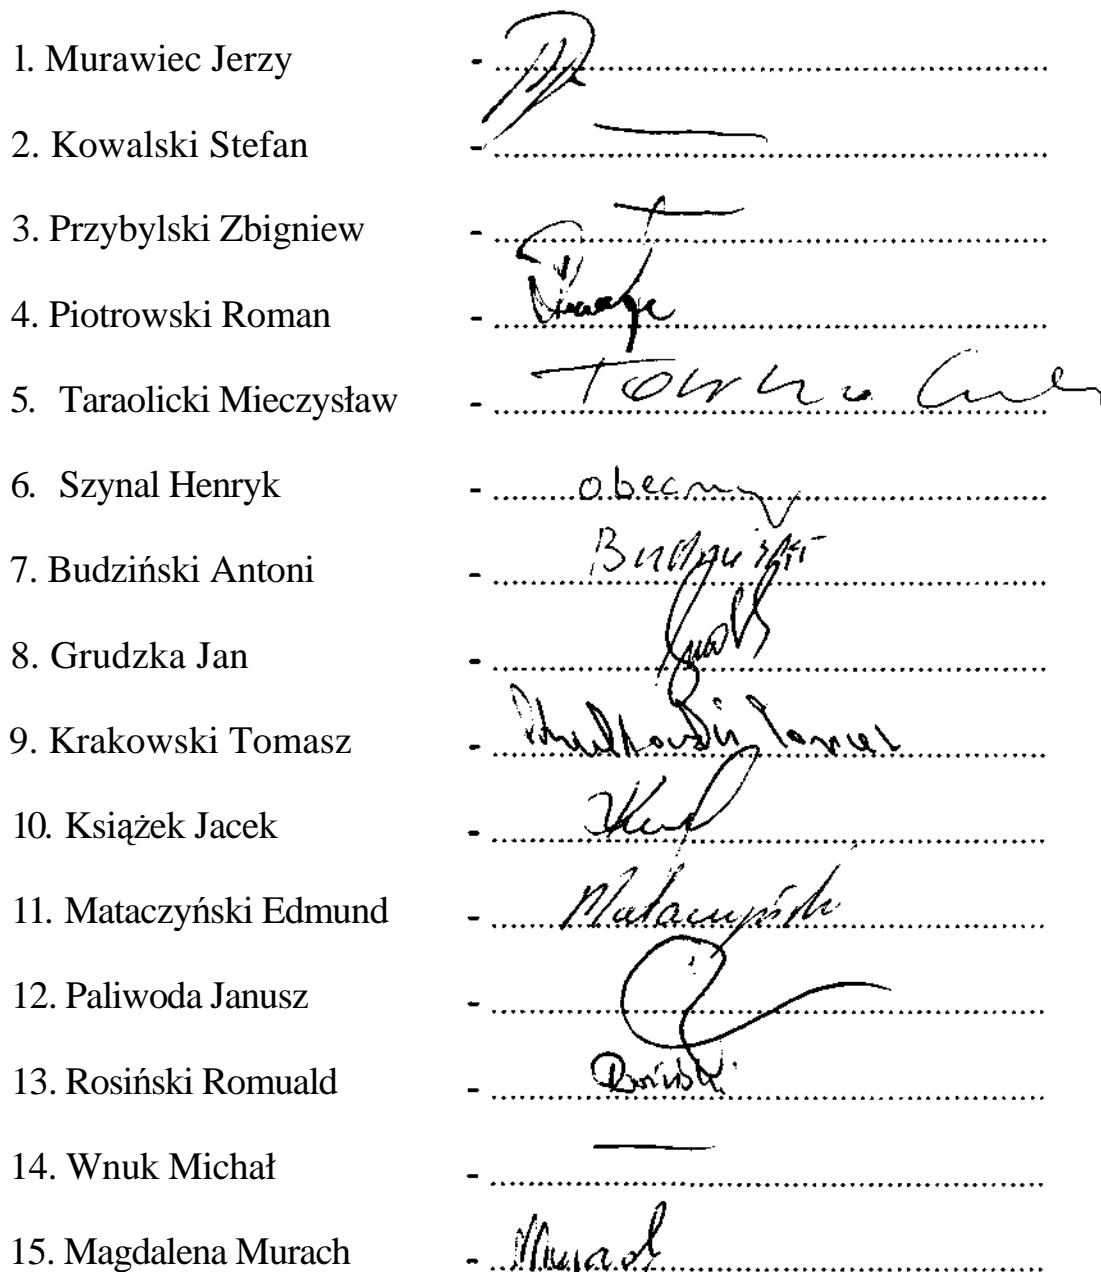 1. Murawiec Jerzy -
2. Kowalski Stefan - —
3. Przybylski Zbigniew - —
4. Piotrowski Roman -
5. Taraolicki Mieczysław -
6. Szynal Henryk - obecny
7. Budziński Antoni - Budziński
8. Grudzka Jan -
9. Krakowski Tomasz -
10. Książek Jacek -
11. Mataczyński Edmund - Mataczyński
12. Paliwoda Janusz -
13. Rosiński Romuald - Rosiński
14. Wnuk Michał - —
15. Magdalena Murach - Murach